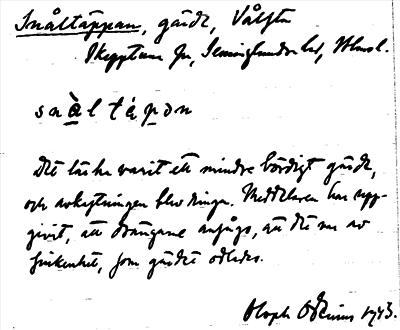 Snåltäppan, gärde, Vålsta
Skepptuna sn, Seminghundra hd, Uppl.
saàltápǝn
Det lär ha varit ett mindre bördigt gärde,
och avkastningen blev ringa. Meddelaren har upp-
givit, att drängarna ansågo, att det var av
snikenhet, som gärdet odlades.
Oloph Odenius 1943.